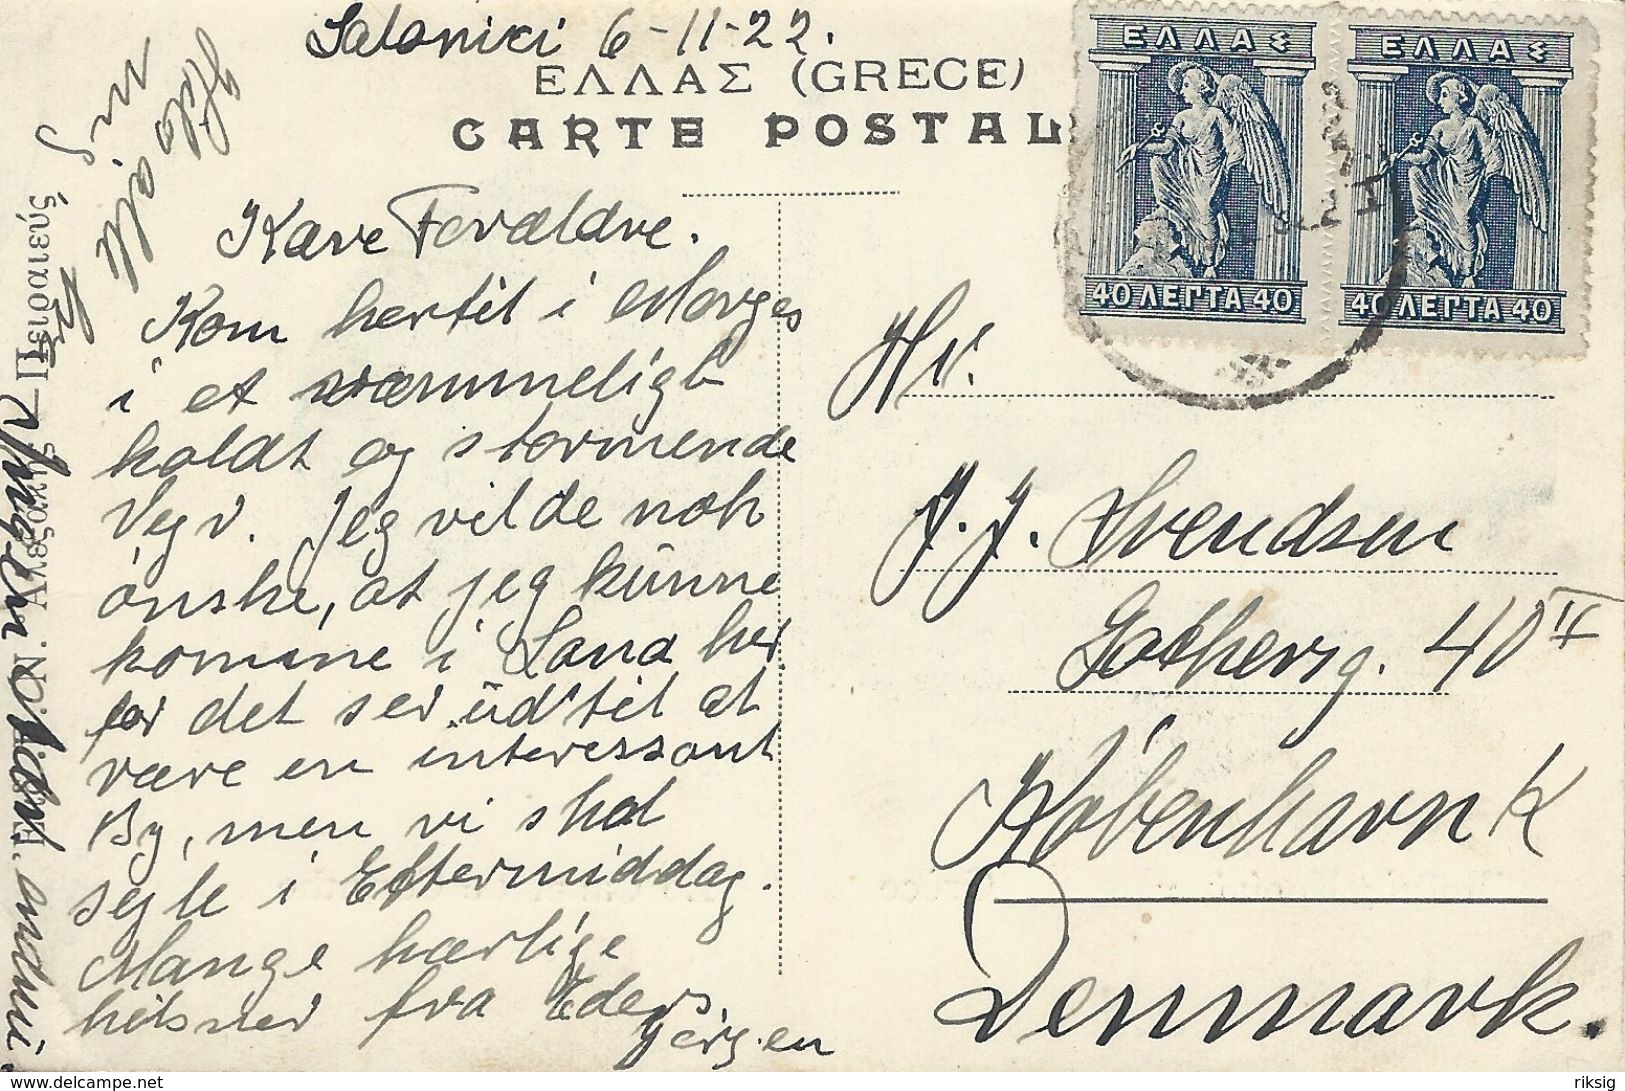 Saloniki 6-11-22.
ΕΛΛΑΣ (GRECE)
CARTE POSTAL
ΕΛΛΑΣ
40 ΛΕΠΤΑ 40
ΕΛΛΑΣ
40 ΛΕΠΤΑ 40
Kære Forældre.
Kom hertil i Morges
i et væmmeligt
koldt og stormende
Vejr. Jeg vilde nok
ønske, at jeg kunne
komme i Land her
for det ser ud til at
være en interessant
By, men vi skal
sejle i Eftermiddag.
Mange hærlige
hilsner fra Eders
Jørgen
Hils
alle
mig
Hr.
J. J. Svendsen
Gothersg. 40 II
København K
Denmark.
riksig